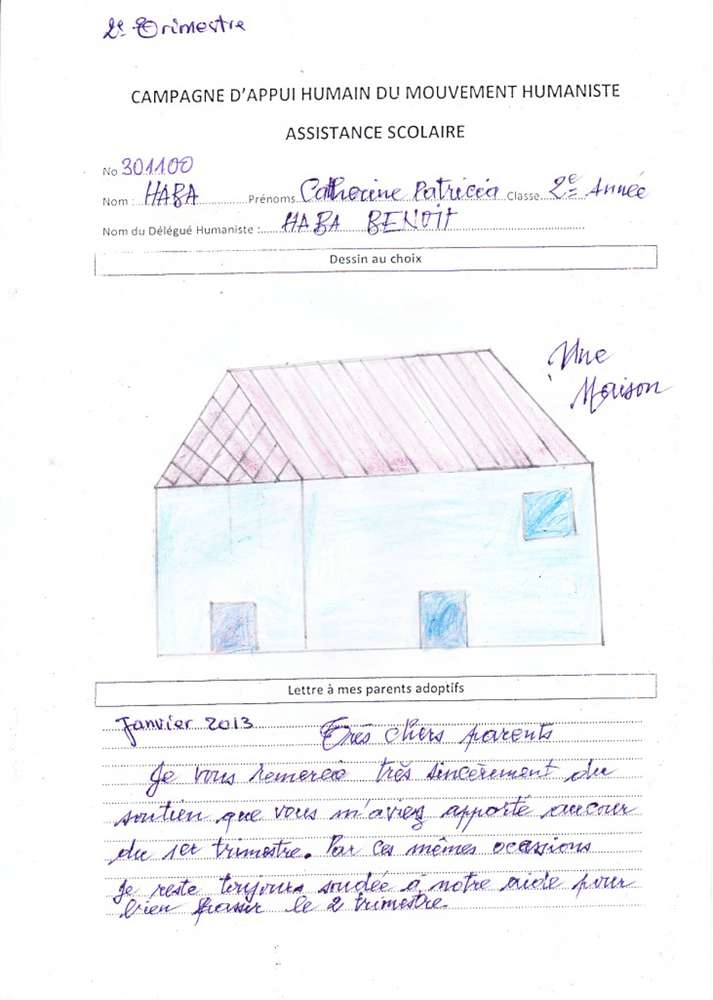 2e Trimestre
CAMPAGNE D'APPUI HUMAIN DU MOUVEMENT HUMANISTE
ASSISTANCE SCOLAIRE
No 301100
Nom : HABA Prénoms Catherine Patricia Classe 2e Année
Nom du Délégué Humaniste : HABA BENOIT
Dessin au choix
Une
Maison
Lettre à mes parents adoptifs
Janvier 2013 Très chers parents
Je vous remercie très sincèrement du
soutien que vous m'aviez apporté aucour
du 1er trimestre. Par ces mêmes ocassions
Je reste toujours soudée à notre aide pour
bien passer le 2 trimestre.